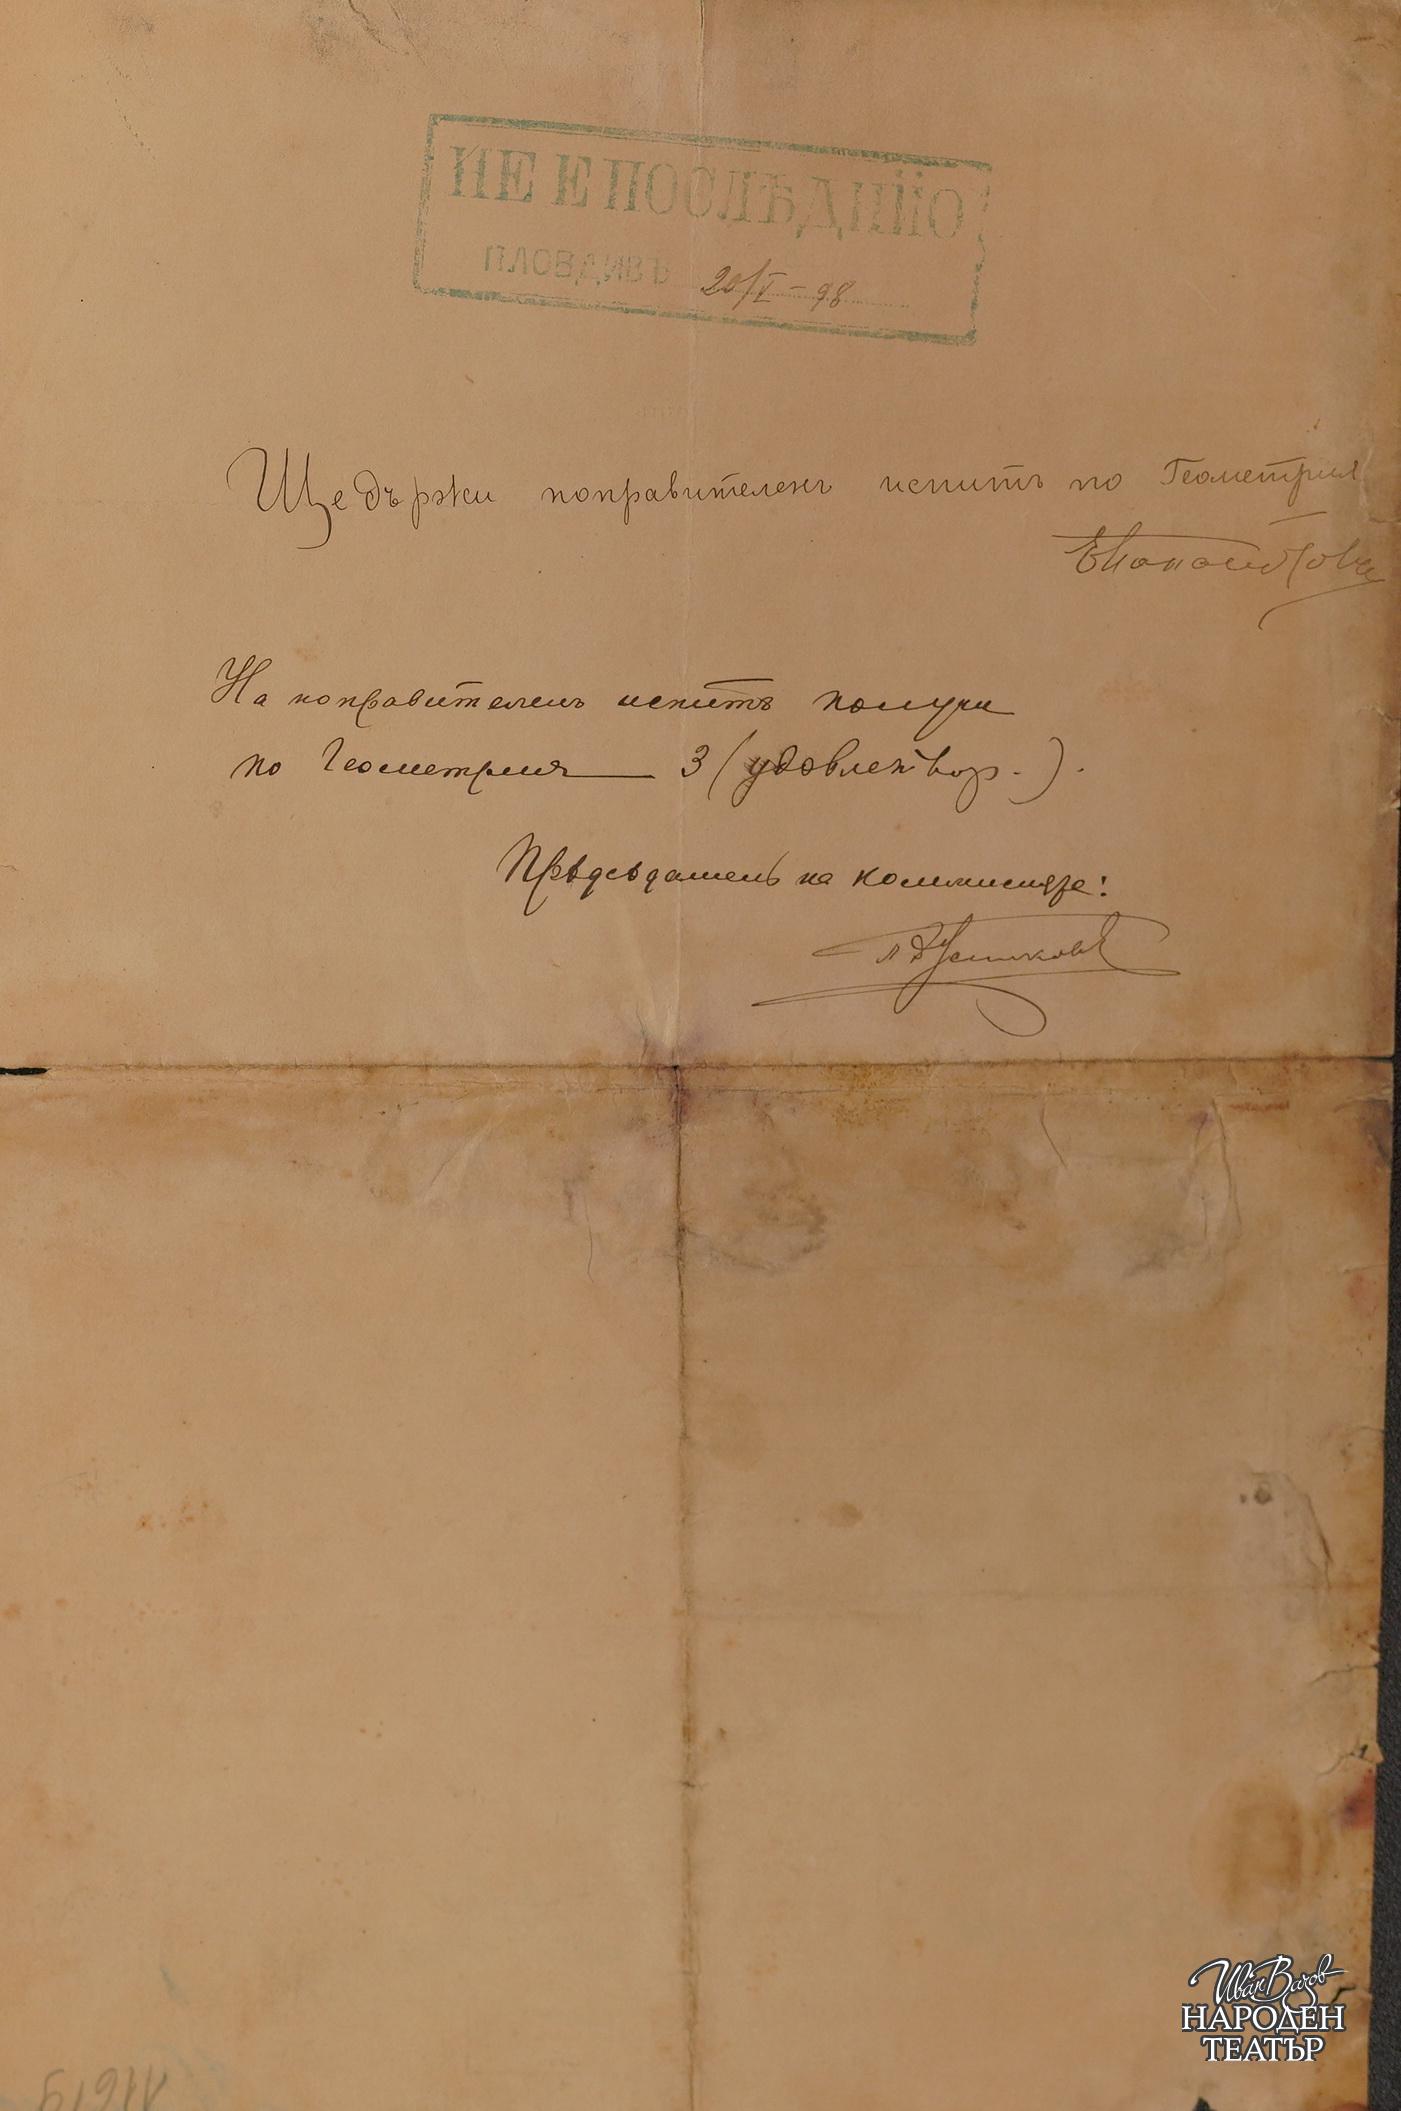 НЕ Е ПОСЛѢДНЙО
ПЛОВДИВЪ 20/V – 98
Ще държи поправителенъ испитъ по Геометрия
На поправителенъ испитъ получи
по Геометрия — 3 (удовлетвор.).
Прѣдсѣдатель на коммисията:
11619
Иван Вазов
НАРОДЕН
ТЕАТЪР